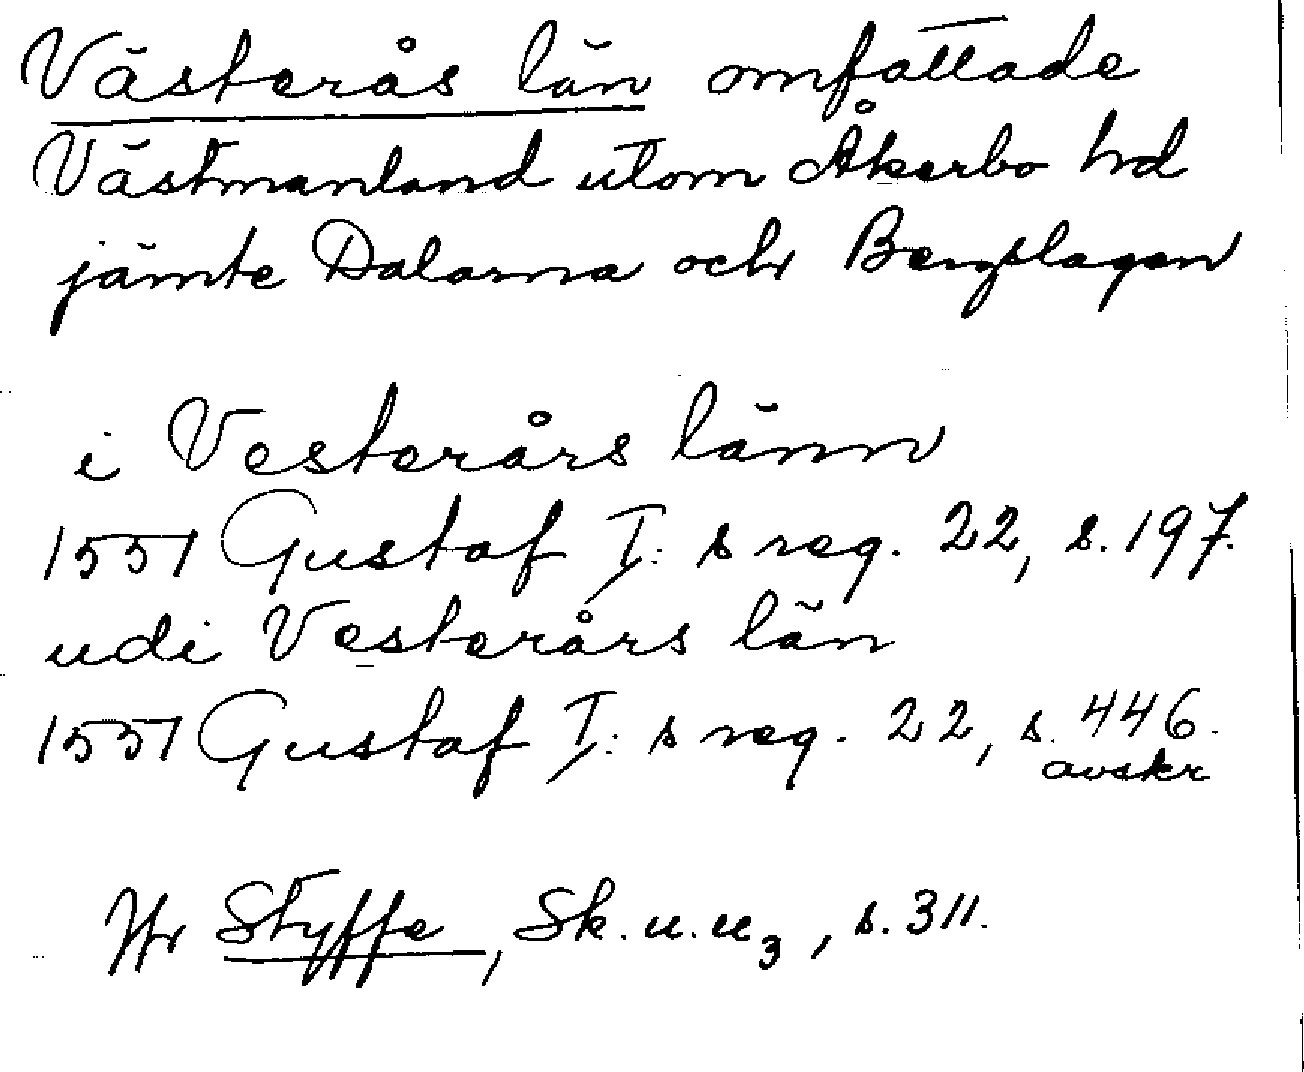 Västerås län omfattade
Västmanland utom Åkerbo hd
jämte Dalarna och Bergslagen
i Vesterårs länn
1551 Gustaf I: s reg. 22, s. 197.
udi Vesterårs län
1551 Gustaf I: s reg. 22, s. 446.
avskr
Jfr Styffe, Sk. u. u₃, s. 311.